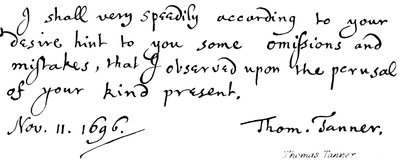 I shall very speedily according to your
desire hint to you some omissions and
mistakes, that I observed upon the perusal
of your kind present.
Nov. 11. 1696. Thom. Tanner.
Thomas Tanner